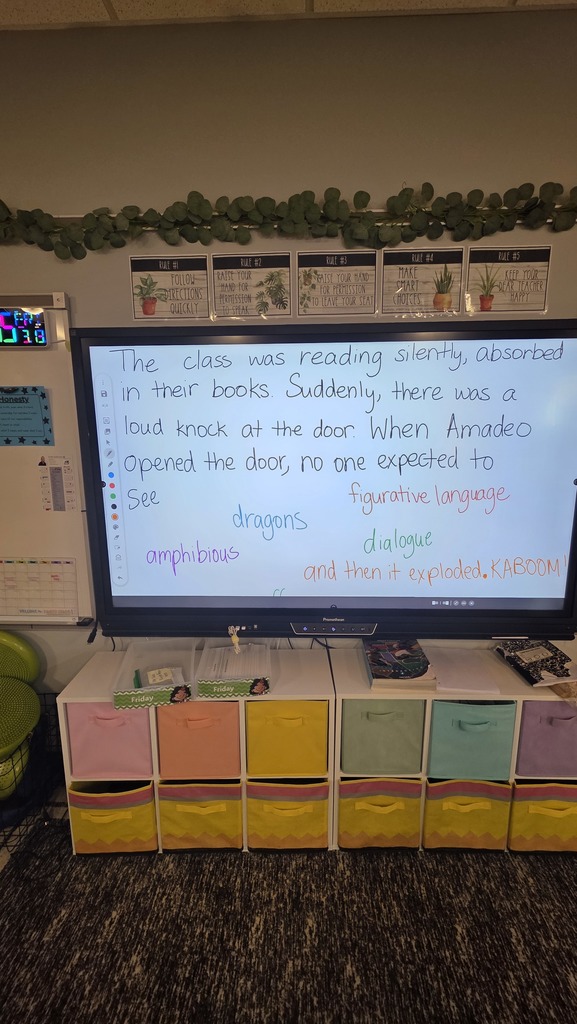 RULE #1
FOLLOW
DIRECTIONS
QUICKLY
RULE #2
RAISE YOUR
HAND FOR
PERMISSION
TO SPEAK
RULE #3
RAISE YOUR HAND
FOR PERMISSION
TO LEAVE YOUR SEAT
RULE #4
MAKE
SMART
CHOICES
RULE #5
KEEP YOUR
DEAR TEACHER
HAPPY
Honesty
The class was reading silently, absorbed
in their books. Suddenly, there was a
loud knock at the door. When Amadeo
opened the door, no one expected to
see
figurative language
dragons
dialogue
amphibious
and then it exploded. KABOOM!
Promethean
Friday
Friday